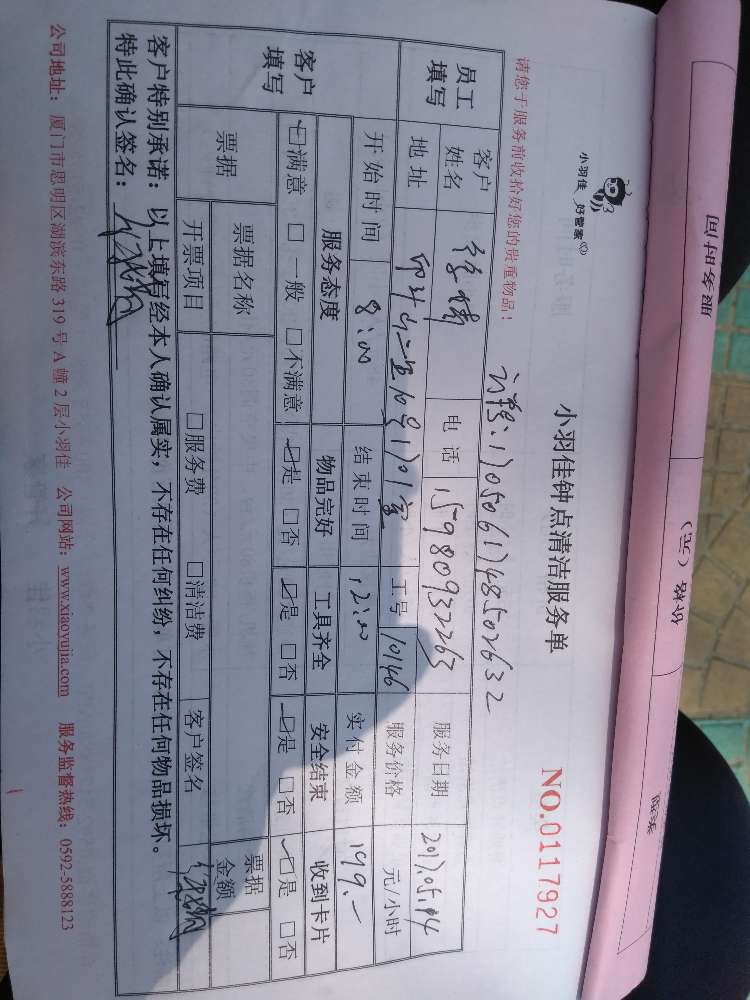 小羽佳 好管家
小羽佳钟点清洁服务单
NO.0117927
请您于服务前收拾好您的贵重物品!
1705061748502632
员工填写 客户姓名 电话 15980932263 服务日期 2017.05.14
地址 工号 10146 服务价格 元/小时
客户填写 开始时间 8:00 结束时间 12:00 实付金额 199.-
服务态度 物品完好 工具齐全 安全结束 收到卡片
☑满意 □一般 □不满意 ☑是 □否 ☑是 □否 ☑是 □否 ☑是 □否
票据 票据名称 票据金额
开票项目 □服务费 □清洁费 客户签名
客户特别承诺:以上填写经本人确认属实,不存在任何纠纷,不存在任何物品损坏。
特此确认签名:
公司地址:厦门市思明区湖滨东路 319 号 A 幢 2 层小羽佳 公司网站:www.xiaoyujia.com 服务监督热线:0592-5888123